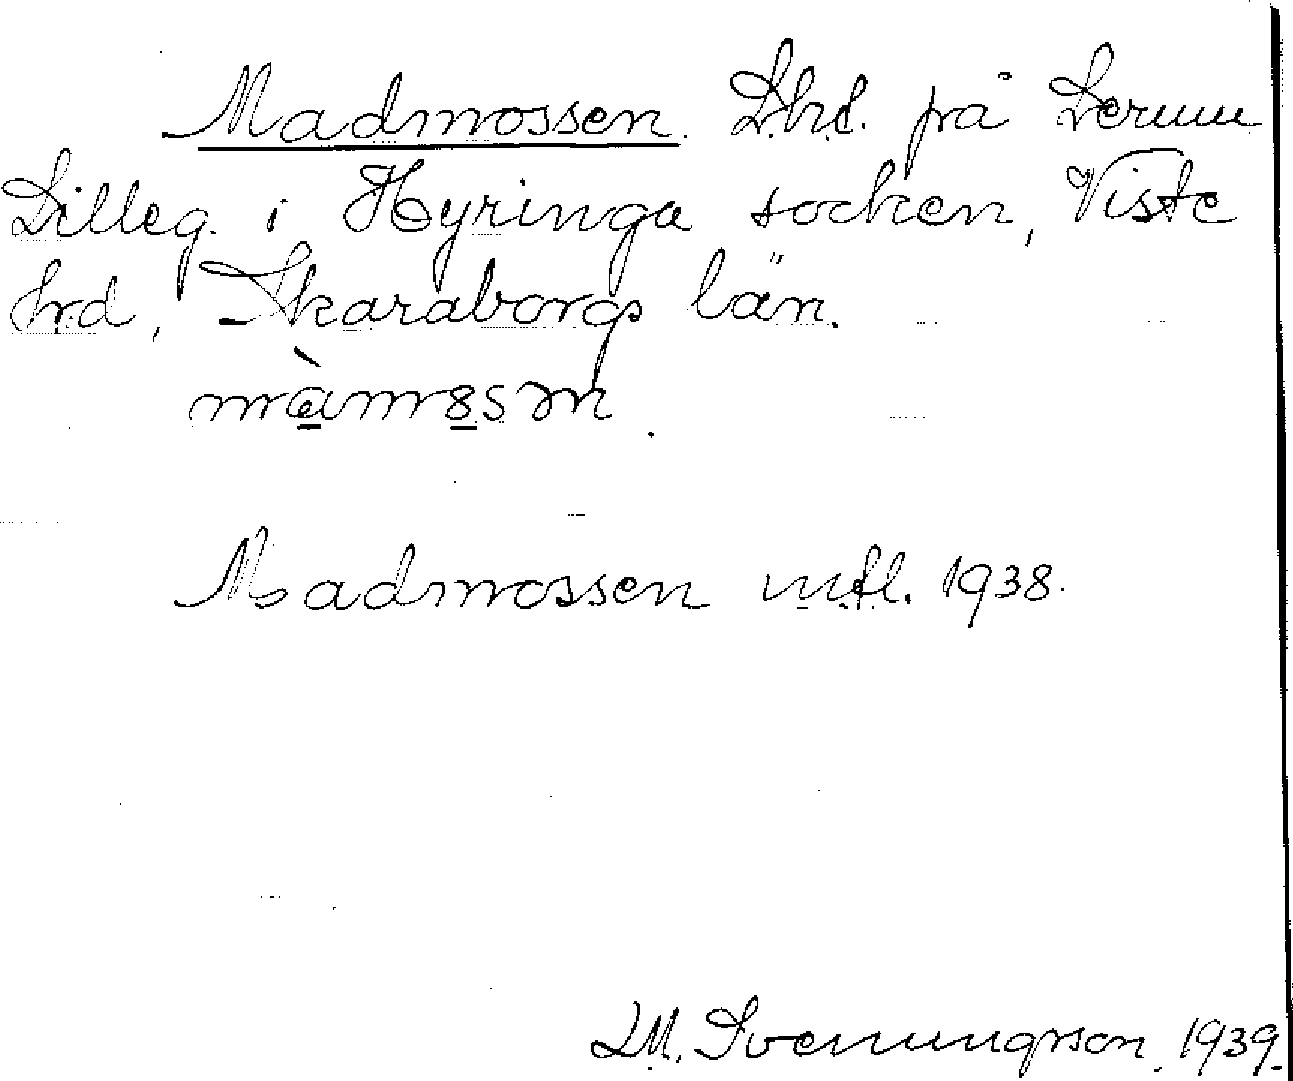 Madmossen. Lht. på Lerum
Lilleg. i Hyringa socken, Viste
hrd, Skaraborgs län.
màm8sm.
Madmossen mfl. 1938.
LM. Svenungsson. 1939.